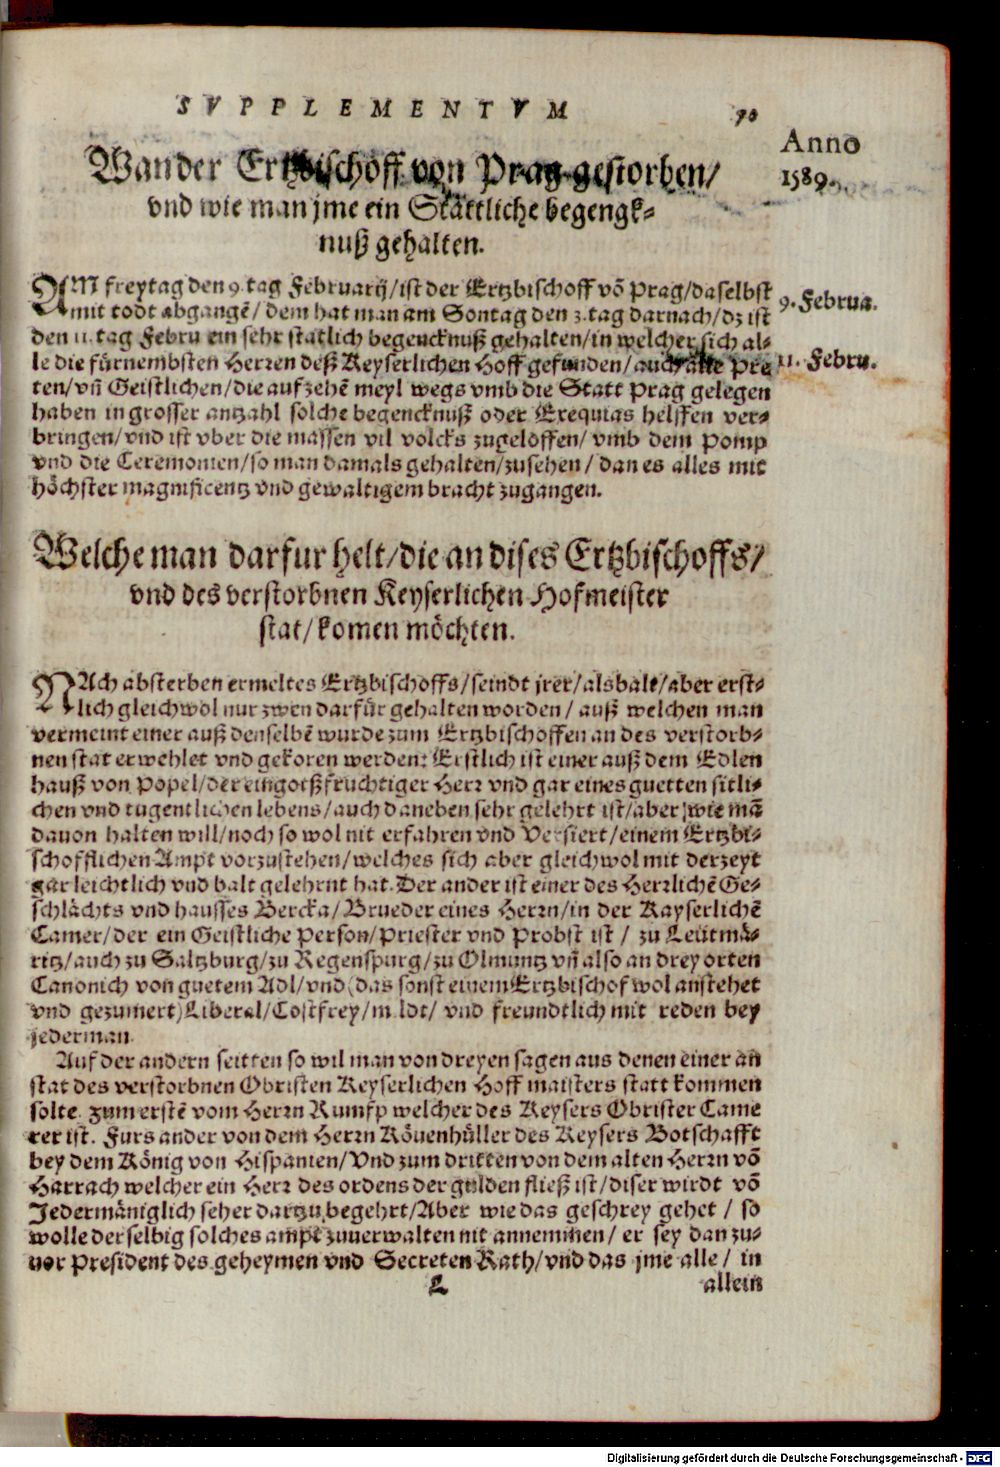 SVPPLEMENTVM
Anno
1589.
Wan der Ertzbischoff von Prag gestorben/
vnd wie man jme ein Stattliche begengk-
nuß gehalten.
AM freytag den 9. tag Februarij/ist der Ertzbischoff võ Prag/daselbst
mit todt abgangẽ/ dem hat man am Sontag den 3. tag darnach/dz ist
den 11. tag Febru ein sehr statlich begencknuß gehalten/in welcher sich al-
le die fürnembsten Herren deß Keyserlichen Hoff gefunden/auch alle Pre
ten/vñ Geistlichen/die auf zehẽ meyl wegs vmb die Statt Prag gelegen
haben in grosser antzahl solche begencknuß oder Exequias helffen ver-
bringen/vnd ist vber die massen vil volcks zugeloffen/ vmb dem Pomp
vnd die Ceremonien/so man damals gehalten/zusehen/ dan es alles mit
höchster magnificentz vnd gewaltigem bracht zugangen.
9. Februa.
11. Febru.
Welche man darfur helt/die an dises Ertzbischoffs/
vnd des verstorbnen Keyserlichen Hofmeister
stat/komen möchten.
NAch absterben ermeltes Ertzbischoffs/seindt jrer/alsbalt/aber erst-
lich gleichwol nur zwen darfür gehalten worden/ auß welchen man
vermeint einer auß denselbẽ wurde zum Ertzbischoffen an des verstorb-
nen stat erwehlet vnd gekoren werden: Erstlich ist einer auß dem Edlen
hauß von Popel/der ein gotßfruchtiger Herr vnd gar eines guetten sitli-
chen vnd tugentlichen lebens/auch daneben sehr gelehrt ist/aber/wie mã
dauon halten will/noch so wol nit erfahren vnd Versiert/einem Ertzbi-
schofflichen Ampt vorzustehen/welches sich aber gleichwol mit der zeyt
gar leichtlich vnd balt gelehrnt hat. Der ander ist einer des Herrlichẽ Ge-
schlächts vnd hausses Bercka/Brueder eines Herrn/in der Kayserlichẽ
Camer/der ein Geistliche Person/Priester vnd Probst ist / zu Leütmä-
ritz/auch zu Saltzburg/zu Regenspurg/zu Olmuntz vñ also an drey orten
Canonich von guetem Adl/vnd (das sonst einem Ertzbischof wol anstehet
vnd gezimert) Liberal/Costfrey/mildt/ vnd freundtlich mit reden bey
jederman.
Auf der andern seitten so wil man von dreyen sagen aus denen einer an
stat des verstorbnen Obristen Keyserlichen Hoff maisters statt kommen
solte. zum erstẽ vom Herrn Rumfp welcher des Keysers Obrister Came
rer ist. Furs ander von dem Herrn Kövenhüller des Keysers Botschafft
bey dem König von Hispanien/Vnd zum dritten von dem alten Herrn võ
Harrach welcher ein Herr des ordens der gulden fließ ist/diser wirdt võ
Jedermäniglich seher dartzu begehrt/Aber wie das geschrey gehet / so
wolle derselbig solches ampt zuuerwalten nit annemmen/ er sey dan zu-
uor President des geheymen vnd Secreten Rath/vnd das jme alle/ in
L
allein